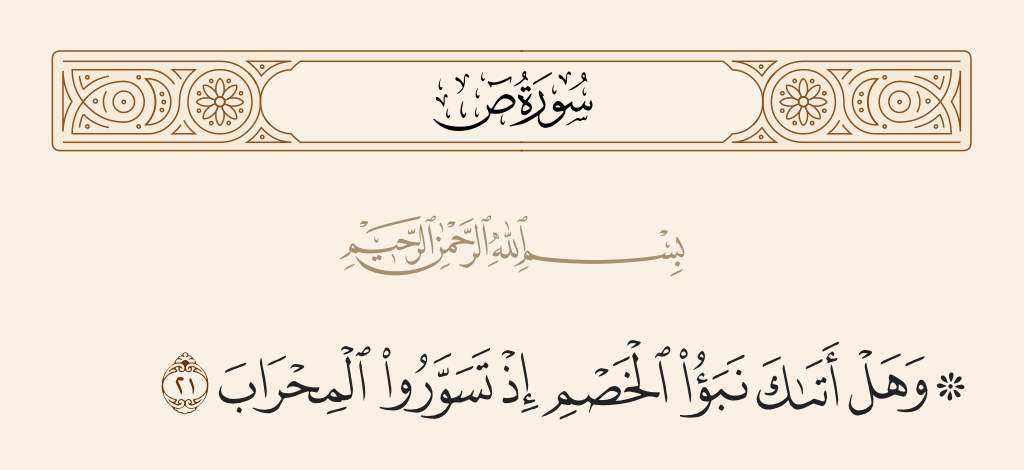 سُورَةُ صٓ
بِسْمِ ٱللَّهِ ٱلرَّحْمَٰنِ ٱلرَّحِيمِ
۞ وَهَلْ أَتَىٰكَ نَبَؤُا۟ ٱلْخَصْمِ إِذْ تَسَوَّرُوا۟ ٱلْمِحْرَابَ ٢١